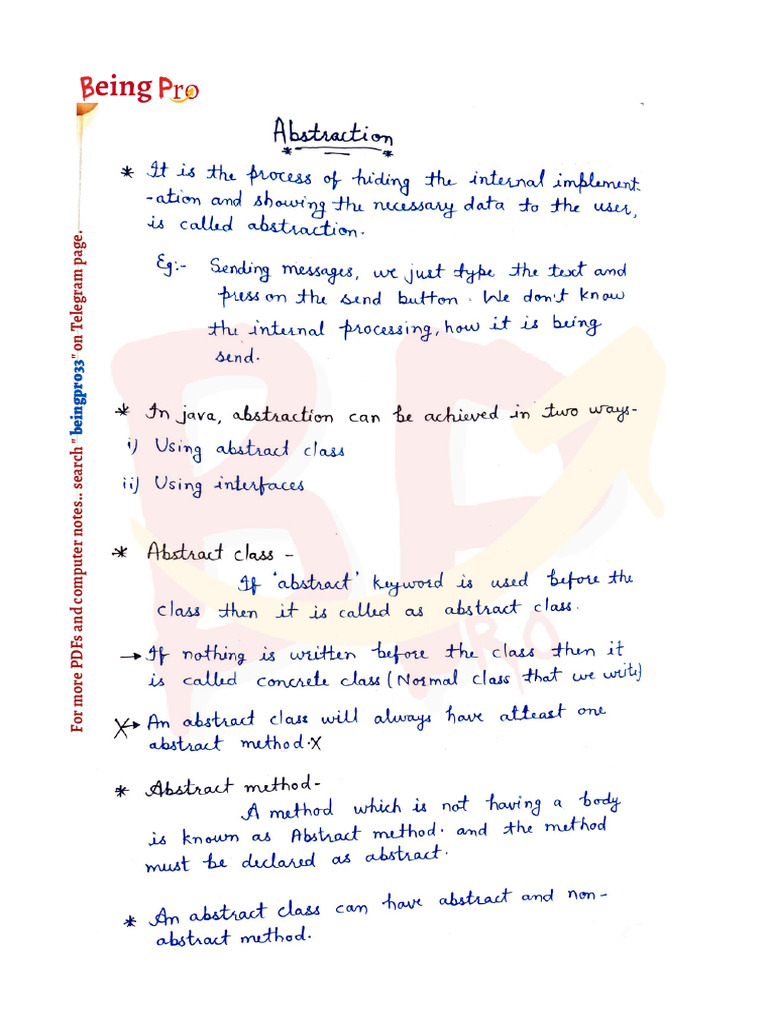 Being Pro
For more PDFs and computer notes.. search " beingpro33" on Telegram page.
Abstraction
* It is the process of hiding the internal implement-
-ation and showing the necessary data to the user,
is called abstraction.
Eg:- Sending messages, we just type the text and
press on the send button. We don't know
the internal processing, how it is being
send.
* In java, abstraction can be achieved in two ways-
i) Using abstract class
ii) Using interfaces
* Abstract class -
If 'abstract' keyword is used before the
class then it is called as abstract class.
→ If nothing is written before the class then it
is called concrete class (Normal class that we write)
X→ An abstract class will always have atleast one
abstract method. X
* Abstract method-
A method which is not having a body
is known as Abstract method. and the method
must be declared as abstract.
* An abstract class can have abstract and non-
abstract method.
BP
PRO